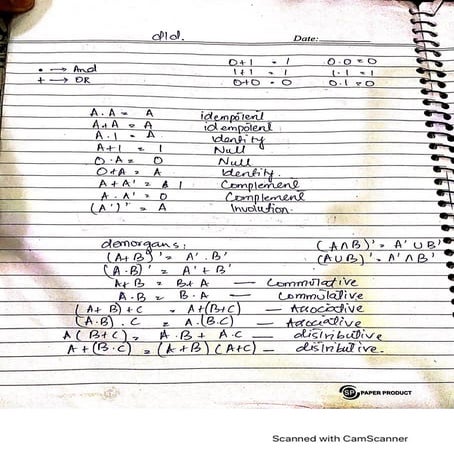 dld.
Date:
0+1 = 1 0·0=0
• → And 1+1 = 1 1·1=1
+ → OR 0+0 = 0 0·1=0
A.A = A idempotent
A+A = A idempotent
A.1 = A identity
A+1 = 1 Null
0.A = 0 Null
0+A = A Identity.
A+A' = 1 Complement
A.A' = 0 Complement
(A')' = A Involution.
demorgans:
(A+B)' = A'.B' (A∩B)' = A'∪B'
(A.B)' = A'+B' (A∪B)' = A'∩B'
A+B = B+A — Commutative
A.B = B.A — Commulative
(A+B)+C = A+(B+C) — Associative
(A.B).C = A.(B.C) — Associative
A(B+C) = A.B + A.C — distributive
A+(B.C) = (A+B)(A+C) — distributive.
SP PAPER PRODUCT
Scanned with CamScanner